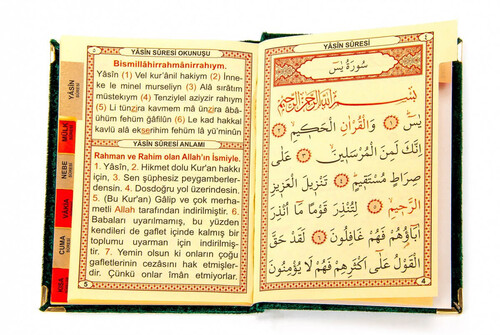 YÂSÎN SÛRESİ OKUNUŞU
Bismillâhirrahmânirrahıym.
Yâsîn (1) Vel kur'ânil hakiym (2) İnne-
ke le minel murseliyn (3) Alâ sırâtım
müstekıym (4) Tenziylel aziyzir rahıym
(5) Li tünzira kavmem mâ ünzira âbâ-
ühüm fehüm gâfilûn (6) Le kad hakkal
kavlü alâ ekserihim fehüm lâ yü'minûn
YÂSÎN SÛRESİ ANLAMI
Rahman ve Rahim olan Allah'ın İsmiyle.
1. Yâsîn, 2. Hikmet dolu Kur'an hakkı
için, 3. Sen şüphesiz peygamberler-
densin. 4. Dosdoğru yol üzerindesin.
5. (Bu Kur'an) Gâlip ve çok merha-
metli Allah tarafından indirilmiştir. 6.
Babaları uyarılmamış, bu yüzden
kendileri de gaflet içinde kalmış bir
toplumu uyarman için indirilmiş-
tir. 7. Yemin olsun ki onların çoğu
gafletlerinin cezasını hak etmişler-
dir. Çünkü onlar îman etmiyorlar.
5
YÂSÎN
SÛRESİ
MÜLK
NEBE
VAKIA
CUMA
KISA
YÂSÎN SÛRESİ
سُورَةُ يٰسٓ
بِسْمِ اللّٰهِ الرَّحْمٰنِ الرَّحِيمِ
يٰسٓ ﴿١﴾ وَالْقُرْاٰنِ الْحَكِيمِ ﴿٢﴾
اِنَّكَ لَمِنَ الْمُرْسَلِينَ ﴿٣﴾ عَلٰى
صِرَاطٍ مُسْتَقِيمٍ ﴿٤﴾ تَنْزِيلَ الْعَزِيزِ
الرَّحِيمِ ﴿٥﴾ لِتُنْذِرَ قَوْمًا مَٓا اُنْذِرَ
اٰبَٓاؤُهُمْ فَهُمْ غَافِلُونَ ﴿٦﴾ لَقَدْ حَقَّ
الْقَوْلُ عَلٰٓى اَكْثَرِهِمْ فَهُمْ لَا يُؤْمِنُونَ
4